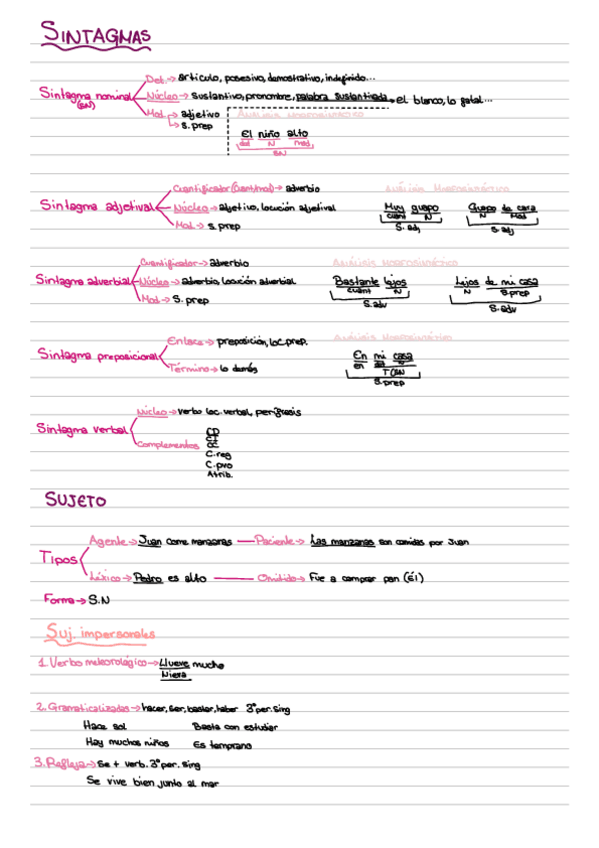 SINTAGMAS
Det.→ artículo, posesivo, demostrativo, indefinido...
Sintagma nominal Núcleo→ Sustantivo, pronombre, palabra sustantivada → el blanco, lo fatal...
(SN)
Mod.→ adjetivo ANÁLISIS MORFOSINTÁCTICO
↳ S.prep
El niño alto
det N mod.
SN
Cuantificador (Cuant/mod)→ adverbio ANÁLISIS MORFOSINTÁCTICO
Sintagma adjetival Núcleo→ adjetivo, locución adjetival Muy guapo Guapo de cara
cuant N N Mod
Mod→ s. prep S. adj S. adj
Cuantificador→ adverbio ANÁLISIS MORFOSINTÁCTICO
Sintagma adverbial Núcleo→ adverbio, locución adverbial Bastante lejos Lejos de mi casa
cuant N N S.prep
Mod→ S. prep S.adv S.adv
Enlace→ preposición, loc.prep. ANÁLISIS MORFOSINTÁCTICO
Sintagma preposicional En mi casa
Término→ lo demás en
T(SN
S.prep
Núcleo→ verbo loc. verbal, perífrasis
Sintagma verbal CD
Complementos CI
CC
C.reg
C.pvo
Atrib.
SUJETO
Agente→ Juan come manzanas — Paciente→ Las manzanas son comidas por Juan
Tipos
Léxico→ Pedro es alto — Omitido→ Fue a comprar pan (Él)
Forma→ S.N
Suj. impersonales
1. Verbo meteorológico→ Llueve mucho
Nieva
2. Gramaticalizadas→ hacer, ser, bastar, haber 3ª per. sing
Hace sol Basta con estudiar
Hay muchos niños Es temprano
3. Refleja→ Se + verb. 3ª per. sing
Se vive bien junto al mar